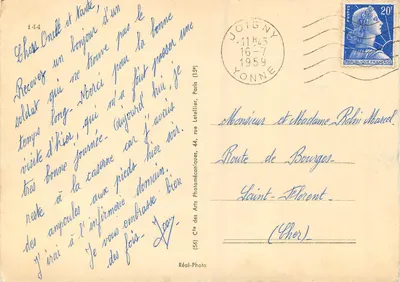 144
Chers Oncle et Tante
Recevez un bonjour d'un
soldat qui ne trouve pas le
temps long. Merci pour la bonne
visite d'hier, qui m'a fait passer une
très bonne journée. Aujourd'hui, je
reste à la caserne car j'avais
des ampoules aux pieds hier soir.
J'irai à l'infirmerie demain.
Je vous embrasse bien
des fois.
Réal-Photo
(56) Cie des Arts Photomécaniques, 44, rue Letellier, Paris (15e)
JOIGNY
11H45
16-7
1959
YONNE
20F
Monsieur et Madame Robin Marcel
Route de Bourges
Saint-Florent
(Cher)